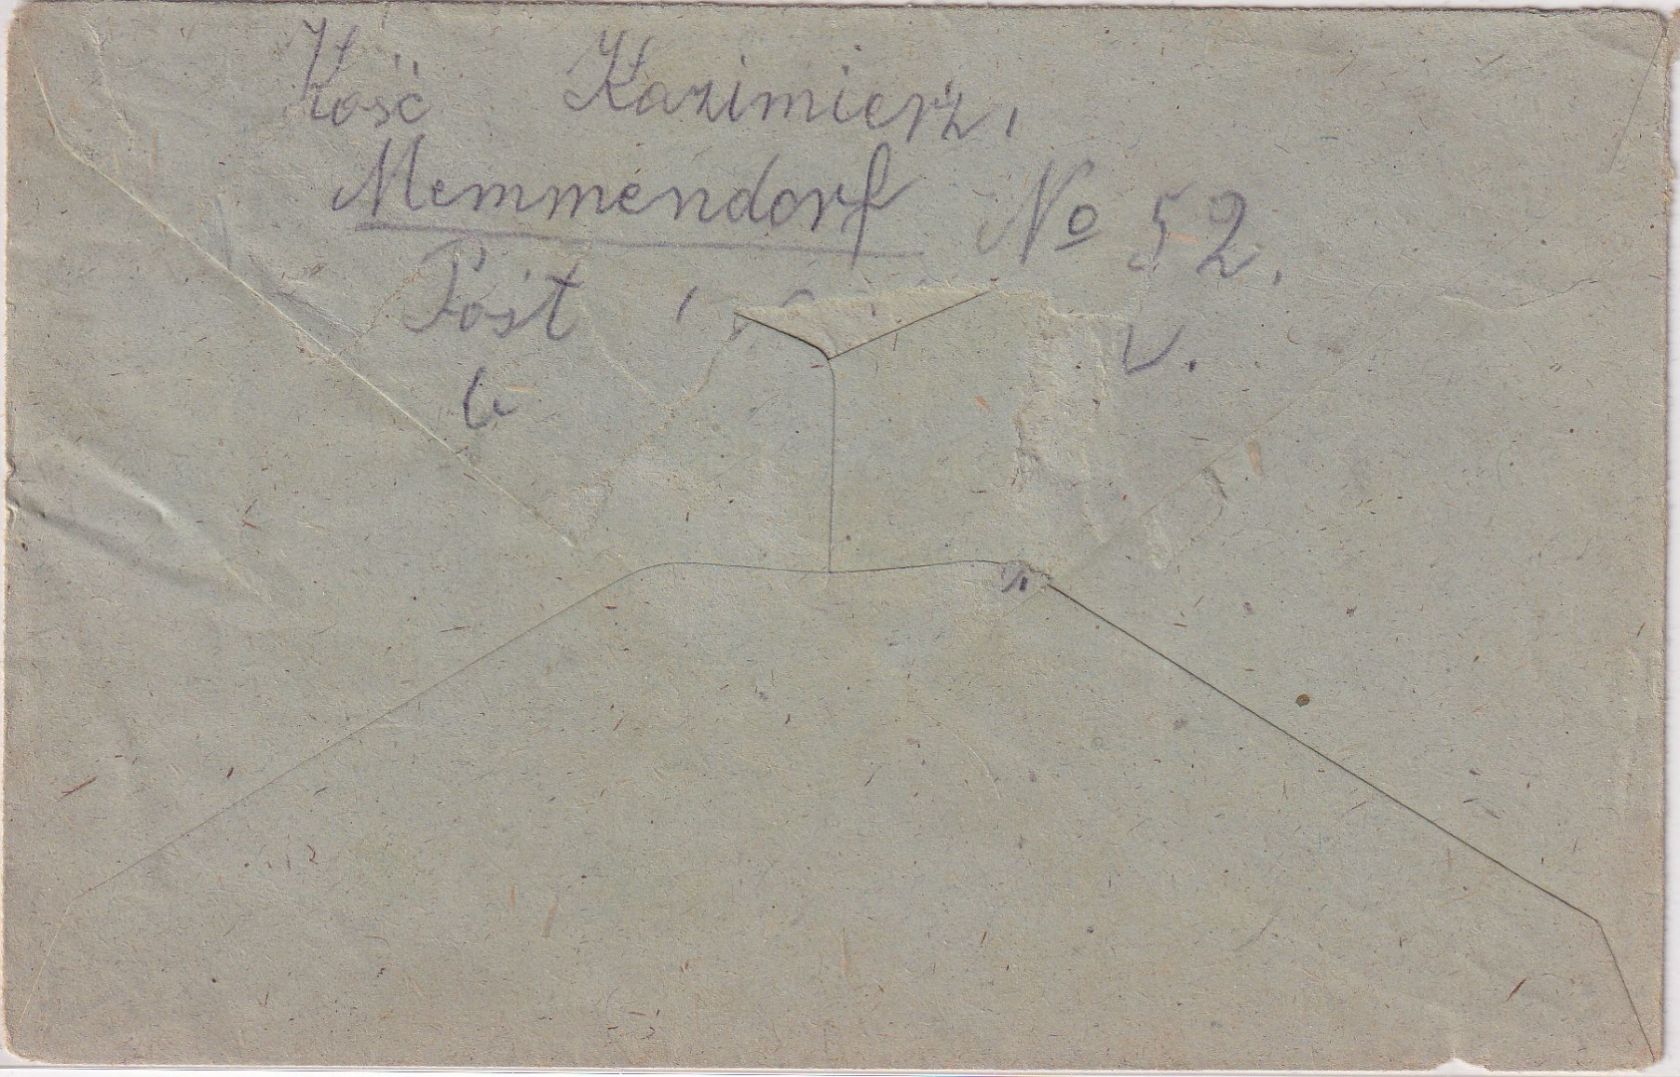 Kość Kazimierz,
Memmendorf No 52.
Post